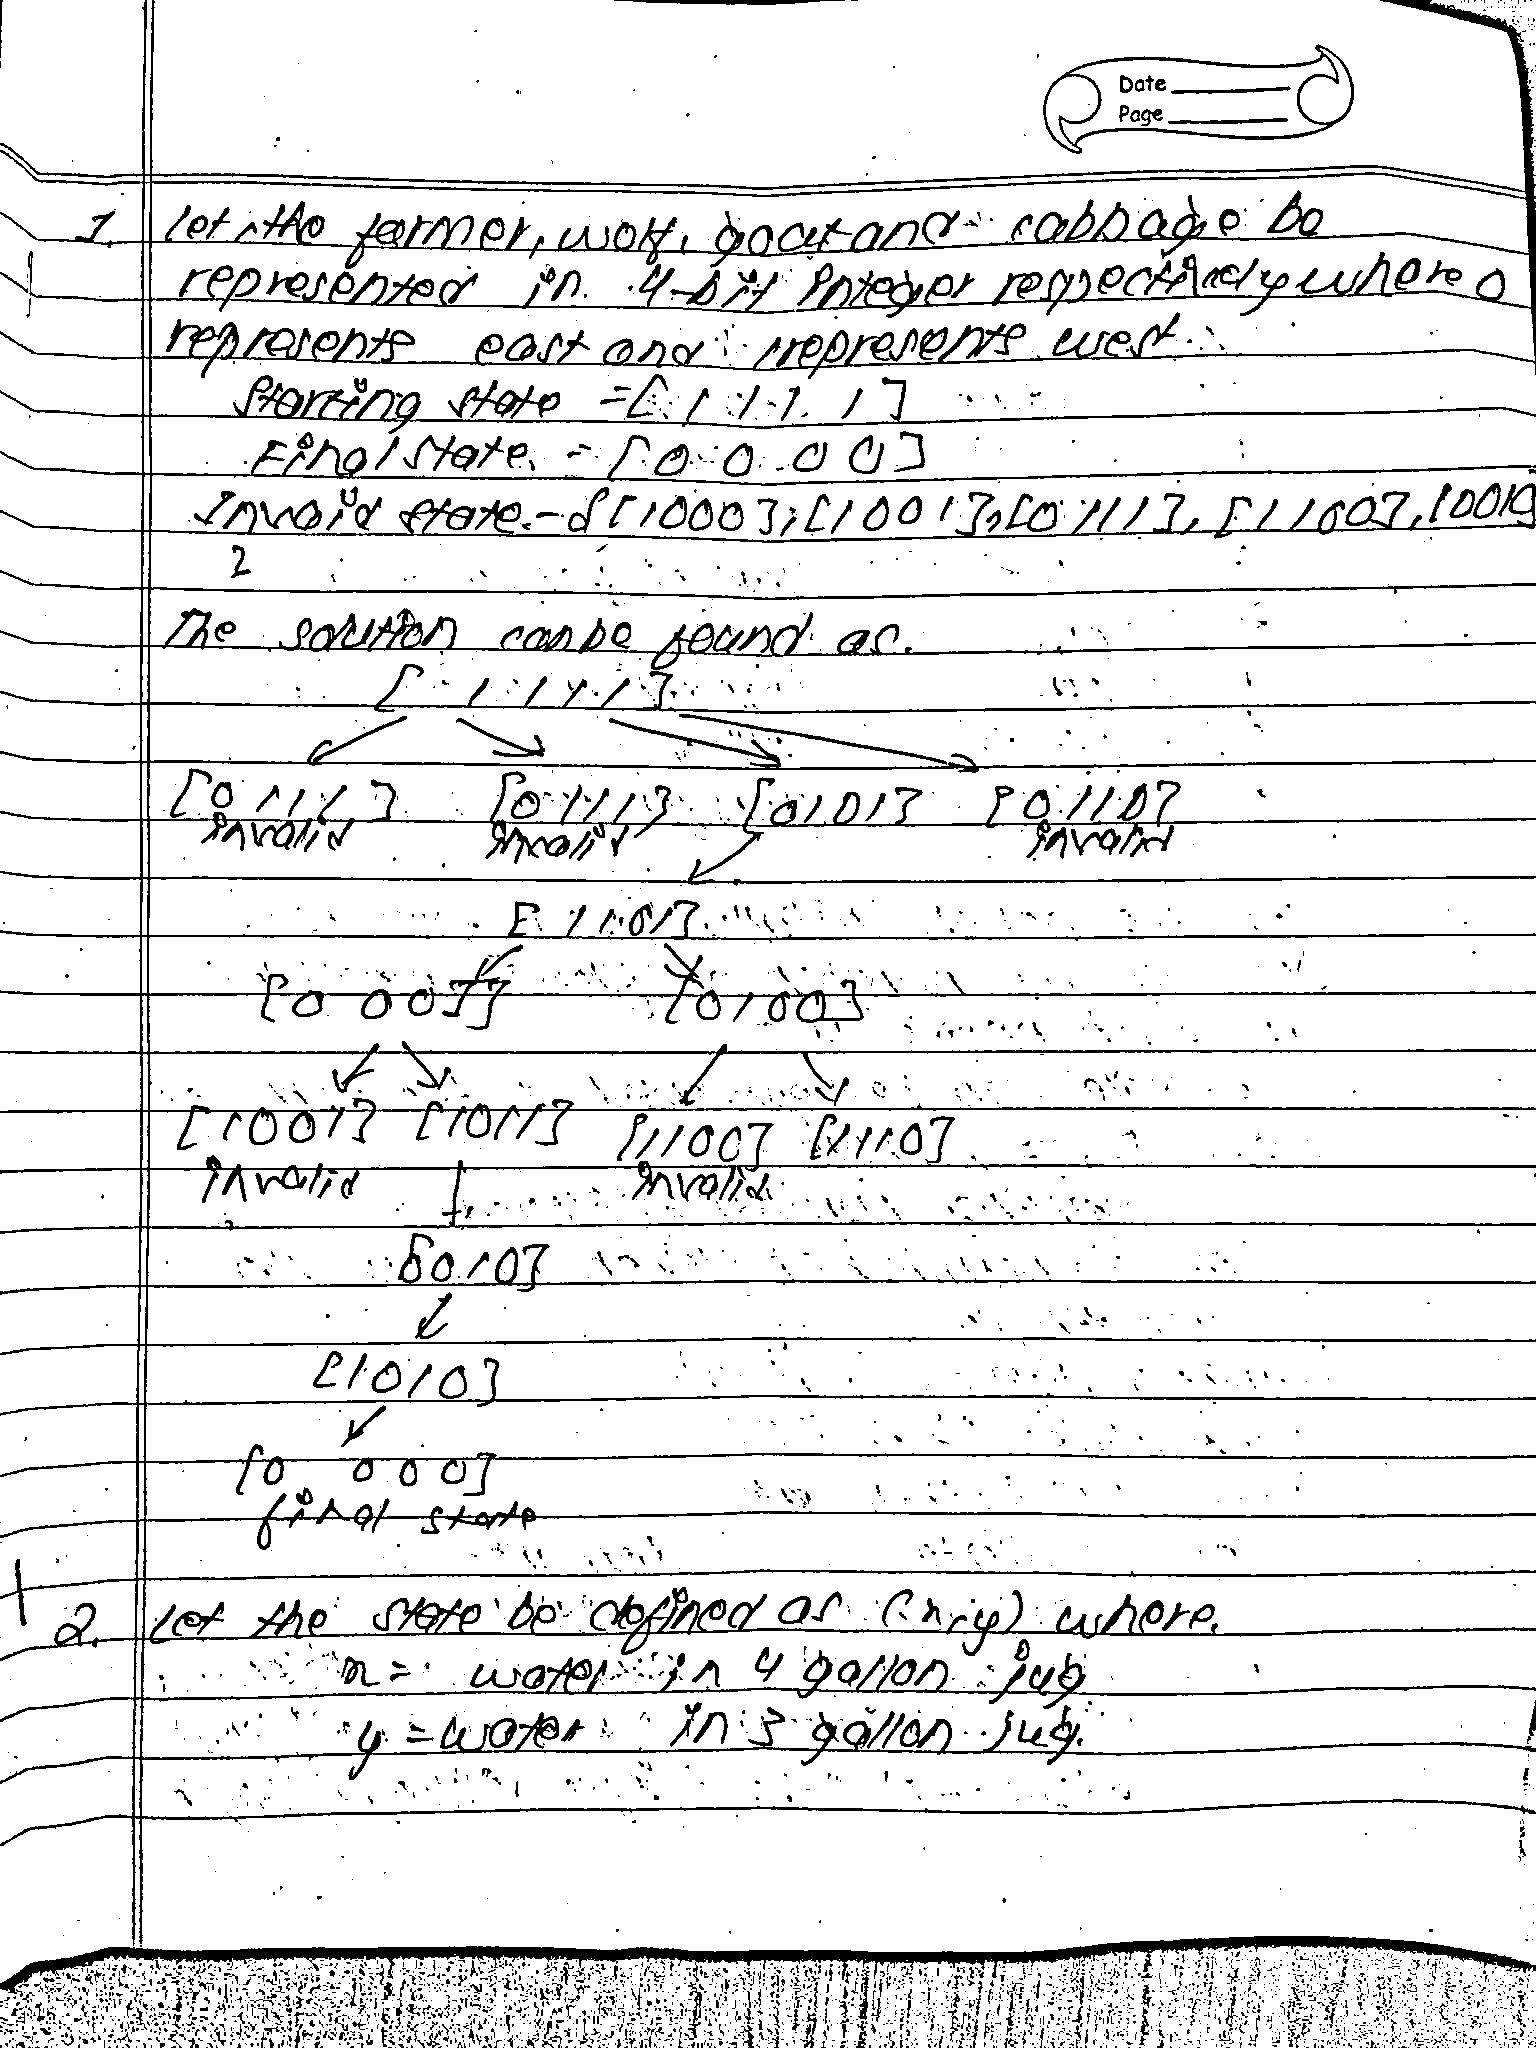 Date
Page
1. let the farmer, wolf, goat and cabbage be
represented in 4-bit integer respectively where 0
represents east and 1 represents west.
Starting state = [ 1 1 1 1 ]
Final state = [ 0 0 0 0 ]
Invalid state = { [1000], [1001], [0111], [1100],
The solution can be found as.
[ 1 1 1 1 ]
[0 1 1 1 ] [0 1 1 1] [0101] [0110]
invalid invalid invalid
[ 1 1 0 1]
[0 0 0 1] [0100]
[1001] [1011] [1100] [1110]
invalid invalid
[0010]
[1010]
[0 0 0 0]
final state
2. Let the state be defined as (x,y) where.
x = water in 4 gallon jug
y = water in 3 gallon jug.